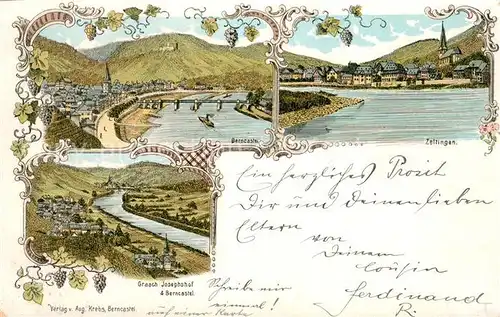 Berncastel.
Zeltingen.
Graach Josephshof
& Berncastel.
Verlag v. Aug. Krebs, Berncastel.
Ein herzliches Prosit
Dir und Deinen lieben
Eltern
von
Deinem
Cousin
Ferdinand
R.
Schreibe mir
einmal!
auf einer Karte